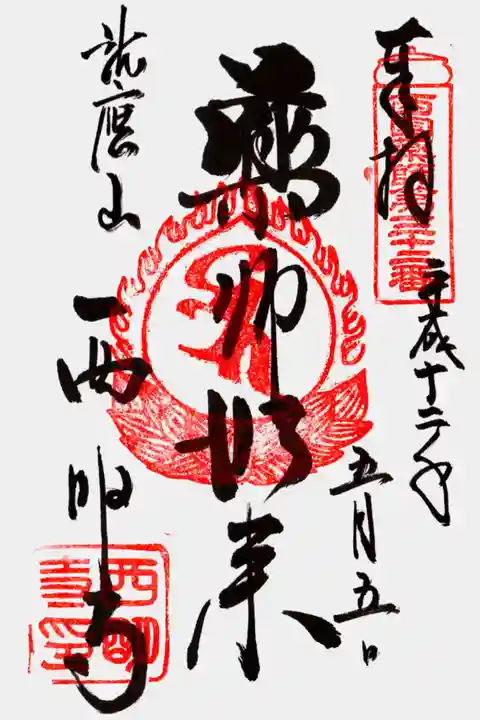 奉拝
西国薬師第三十二番
平成十二年
五月五日
薬師如来
龍應山
西明寺
西明寺印